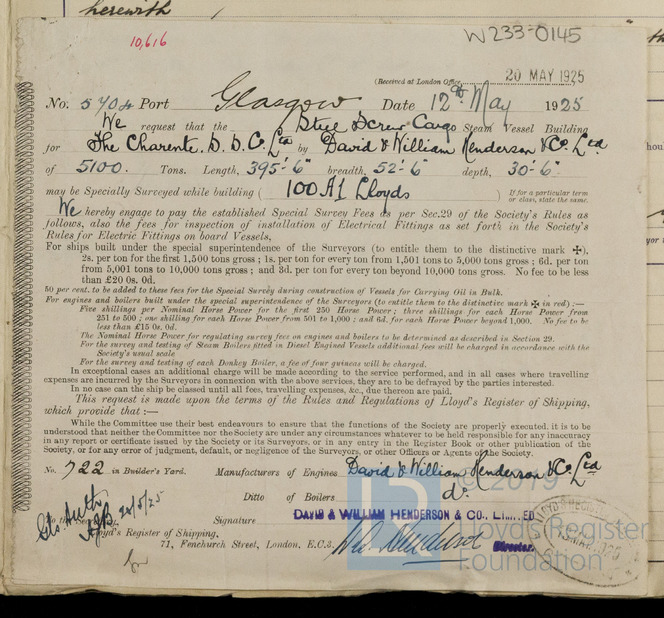 herewith
10,616
W233-0145
(Received at London Office
20 MAY 1925
No. 5704 Port Glasgow Date 12th May 1925
We request that the Steel Screw Cargo Steam Vessel Building
for The Charente. S. S. Co. Ltd by David & William Henderson & Co. Ltd.
of 5100. Tons. Length, 395'-6" breadth, 52'-6" depth, 30'-6"
may be Specially Surveyed while building ( 100 A1 Lloyds ) If for a particular term
or class, state the same.
We hereby engage to pay the established Special Survey Fees as per Sec. 29 of the Society's Rules as
follows, also the fees for inspection of installation of Electrical Fittings as set forth in the Society's
Rules for Electric Fittings on board Vessels,
For ships built under the special superintendence of the Surveyors (to entitle them to the distinctive mark ✠),
2s. per ton for the first 1,500 tons gross ; 1s. per ton for every ton from 1,501 tons to 5,000 tons gross ; 6d. per ton
from 5,001 tons to 10,000 tons gross ; and 3d. per ton for every ton beyond 10,000 tons gross. No fee to be less
than £20 0s. 0d.
50 per cent. to be added to these fees for the Special Survey during construction of Vessels for Carrying Oil in Bulk.
For engines and boilers built under the special superintendence of the Surveyors (to entitle them to the distinctive mark ✠ in red) :—
Five shillings per Nominal Horse Power for the first 250 Horse Power ; three shillings for each Horse Power from
251 to 500 ; one shilling for each Horse Power from 501 to 1,000 ; and 6d. for each Horse Power beyond 1,000. No fee to be
less than £15 0s. 0d.
The Nominal Horse Power for regulating survey fees on engines and boilers to be determined as described in Section 29.
For the survey and testing of Steam Boilers fitted in Diesel Engined Vessels additional fees will be charged in accordance with the
Society's usual scale
For the survey and testing of each Donkey Boiler, a fee of four guineas will be charged.
In exceptional cases an additional charge will be made according to the service performed, and in all cases where travelling
expenses are incurred by the Surveyors in connexion with the above services, they are to be defrayed by the parties interested.
In no case can the ship be classed until all fees, travelling expenses, &c., due thereon are paid.
This request is made upon the terms of the Rules and Regulations of Lloyd's Register of Shipping,
which provide that :—
While the Committee use their best endeavours to ensure that the functions of the Society are properly executed, it is to be
understood that neither the Committee nor the Society are under any circumstances whatever to be held responsible for any inaccuracy
in any report or certificate issued by the Society or its Surveyors, or in any entry in the Register Book or other publication of the
Society, or for any error of judgment, default, or negligence of the Surveyors, or other Officers or Agents of the Society.
No. 722 in Builder's Yard. Manufacturers of Engines David & William Henderson & Co. Ltd
Ditto of Boilers do.
Signature DAVID & WILLIAM HENDERSON & CO., LIMITED
Director.
Lloyd's Register of Shipping.
71, Fenchurch Street, London, E.C.3.
© 2019
Lloyd's Register
Foundation